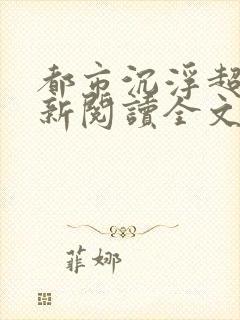 都市沉浮超
新閱讀全文
菲娜